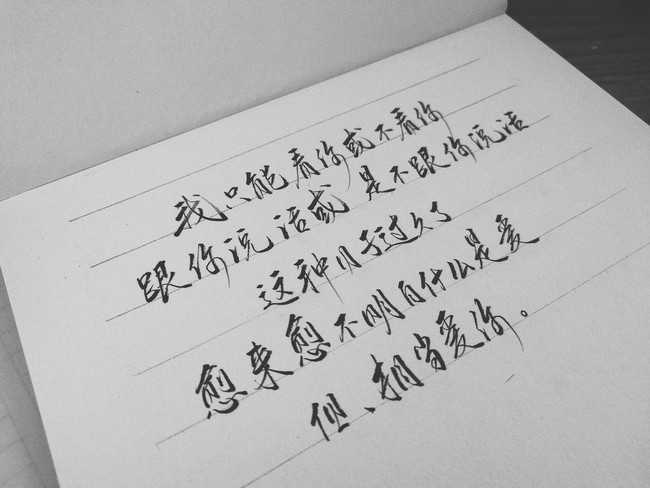 我只能看你或不看你
跟你说话或是不跟你说话
这种日子过久了
愈来愈不明白什么是爱
但、相当爱你。